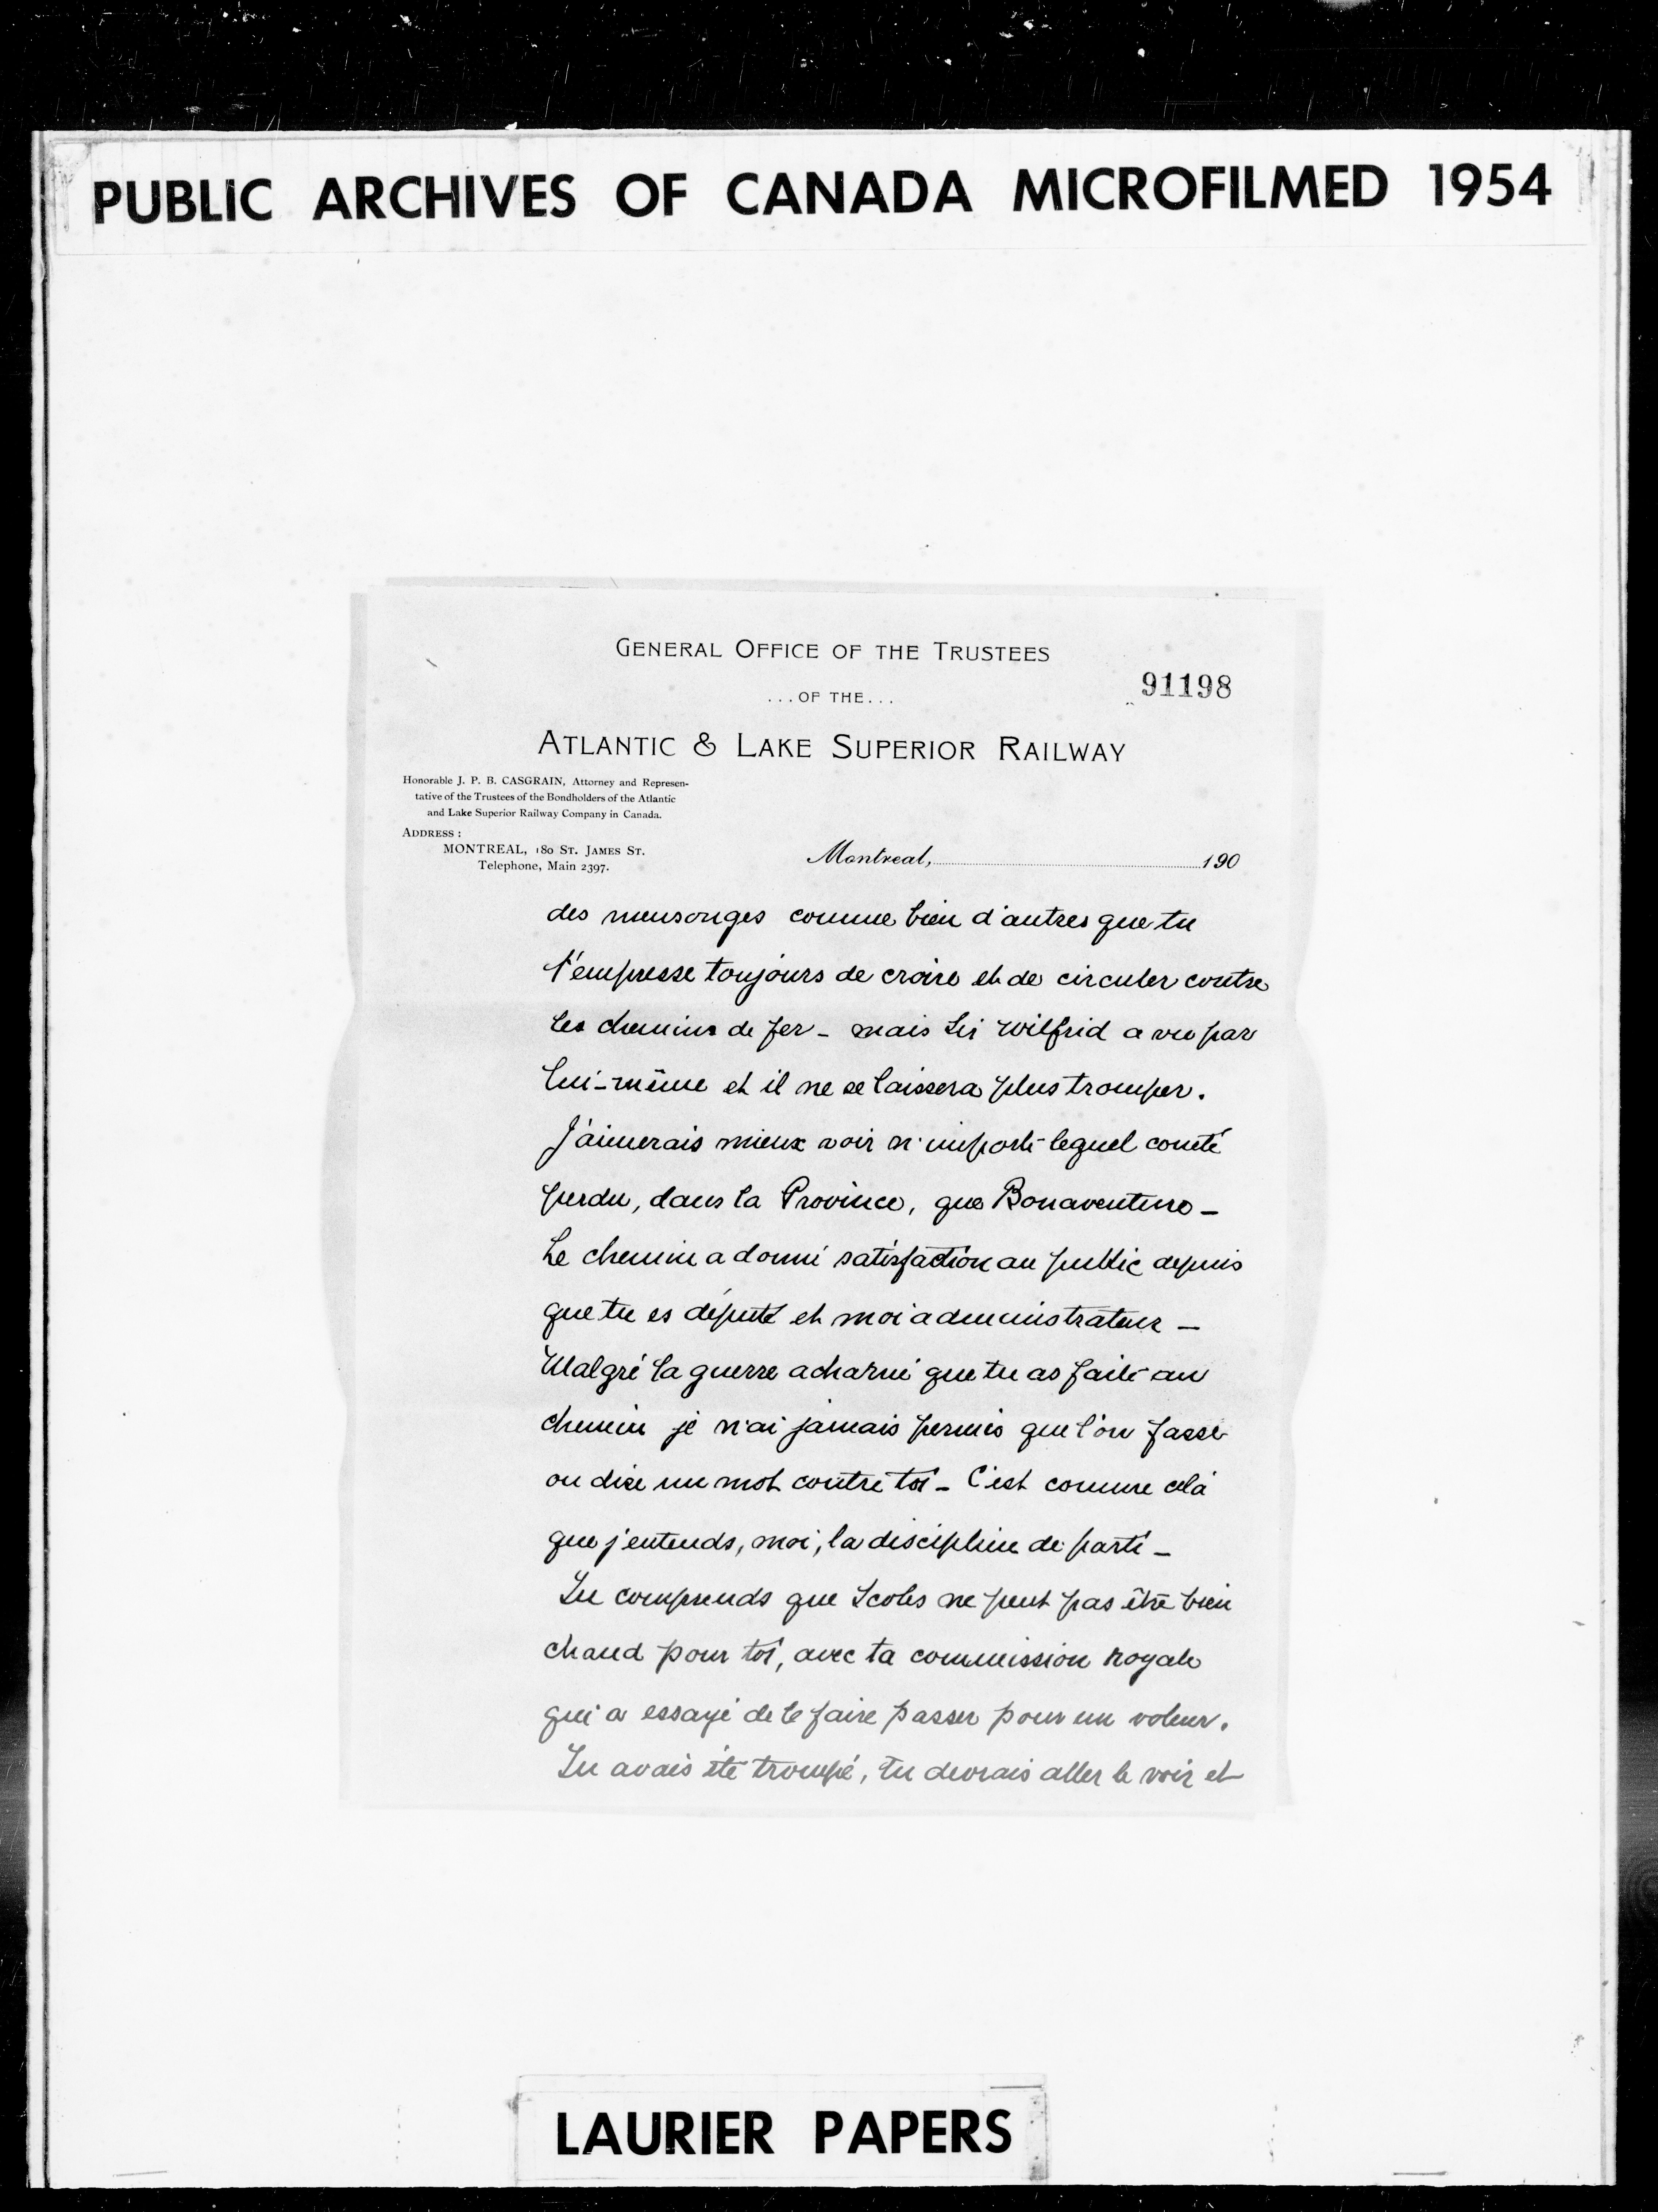 PUBLIC ARCHIVES OF CANADA MICROFILMED 1954
GENERAL OFFICE OF THE TRUSTEES
91198
...OF THE...
ATLANTIC & LAKE SUPERIOR RAILWAY
Honorable J. P. B. CASGRAIN, Attorney and Represen-
tative of the Trustees of the Bondholders of the Atlantic
and Lake Superior Railway Company in Canada.
ADDRESS :
MONTREAL, 180 ST. JAMES ST.
Telephone, Main 2397.
Montreal, 190
des mensonges comme bien d'autres que tu
t'empresse toujours de croire et de circuler contre
les chemins de fer - mais Sir Wilfrid a vu par
lui-même et il ne se laissera plus tromper.
J'aimerais mieux voir n'importe lequel comté
perdu, dans la Province, que Bonaventure -
Le chemin a donné satisfaction au public depuis
que tu es député et moi administrateur -
Malgré la guerre acharné que tu as faite au
chemin je n'ai jamais permis que l'on fasse
ou dise un mot contre toi - C'est comme cela
que j'entends, moi, la discipline de parti -
Tu comprends que Scoles ne peut pas être bien
chaud pour toi, avec ta commission royale
qui a essayé de le faire passer pour un voleur.
Tu avais été trompé, tu devrais aller le voir et
LAURIER PAPERS